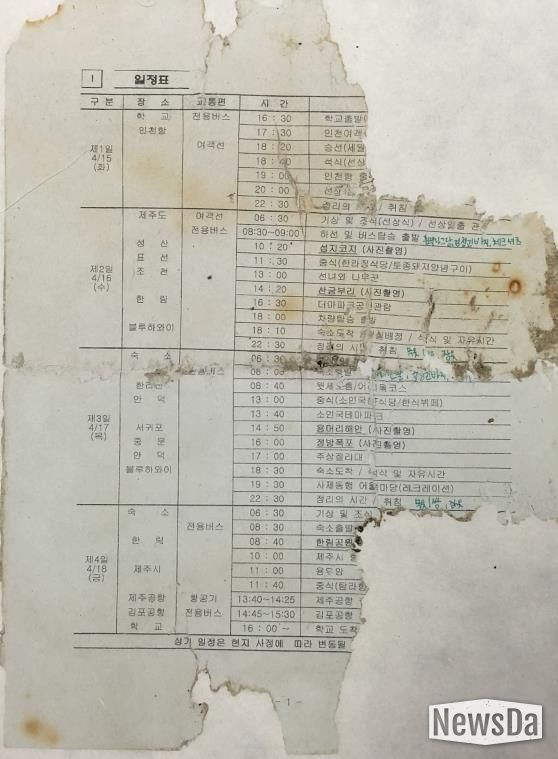 I 일정표
구 분 장 소 교통편 시 간
학 교 전용버스 16 : 30 학교출발(
인천항 17 : 30 인천여객
제1일 4/15 (화) 여객선 18 : 20 승선(세월
18 : 40 석식(선상
19 : 00 인천항 출
20 : 00 선상
22 : 30 정리의 / 취침
제주도 여객선 06 : 30 기상 및 조식(선상식) / 선상일출 관
전용버스 08:30~09:00 하선 및 버스탑승 출발
성 산 10 : 20 섭지코지 (사진촬영)
제2일 4/16 (수) 표 선 11 : 30 중식(한라정식당/토종돼지양념구이)
조 천 13 : 00 선녀와 나무꾼
14 : 20 산굼부리 (사진촬영)
한 림 16 : 30 더마파크공연관람
18 : 00 차량탑승 출발
블루하와이 18 : 10 숙소도착 / 실배정 / 석식 및 자유시간
22 : 30 정리의 시간 / 취침
숙 소 06 : 30
전용버스 08 : 00 숙소출발
한라산 08 : 40 윗세오름/어리목코스
제3일 4/17 (목) 안 덕 13 : 00 중식(소인국한식당/한식뷔페)
13 : 40 소인국테마파크
서귀포 14 : 50 용머리해안 (사진촬영)
중 문 16 : 00 정방폭포 (사진촬영)
안 덕 17 : 00 주상절리대
블루하와이 18 : 30 숙소도착 / 석식 및 자유시간
19 : 30 사제동행 어울마당(레크레이션)
22 : 30 정리의 시간 / 취침
숙 소 06 : 30 기상 및 조식
전용버스 08 : 30 숙소출발
한 림 08 : 40 한림공원
제4일 4/18 (금) 제주시 10 : 00 제주시
11 : 00 용두암
11 : 40 중식(탐라
제주공항 항공기 13:40~14:25 제주공항
김포공항 전용버스 14:45~15:30 김포공항
학 교 16 : 00 ~ 학교 도착
상기 일정은 현지 사정에 따라 변동될
- 1 -
NewsDa